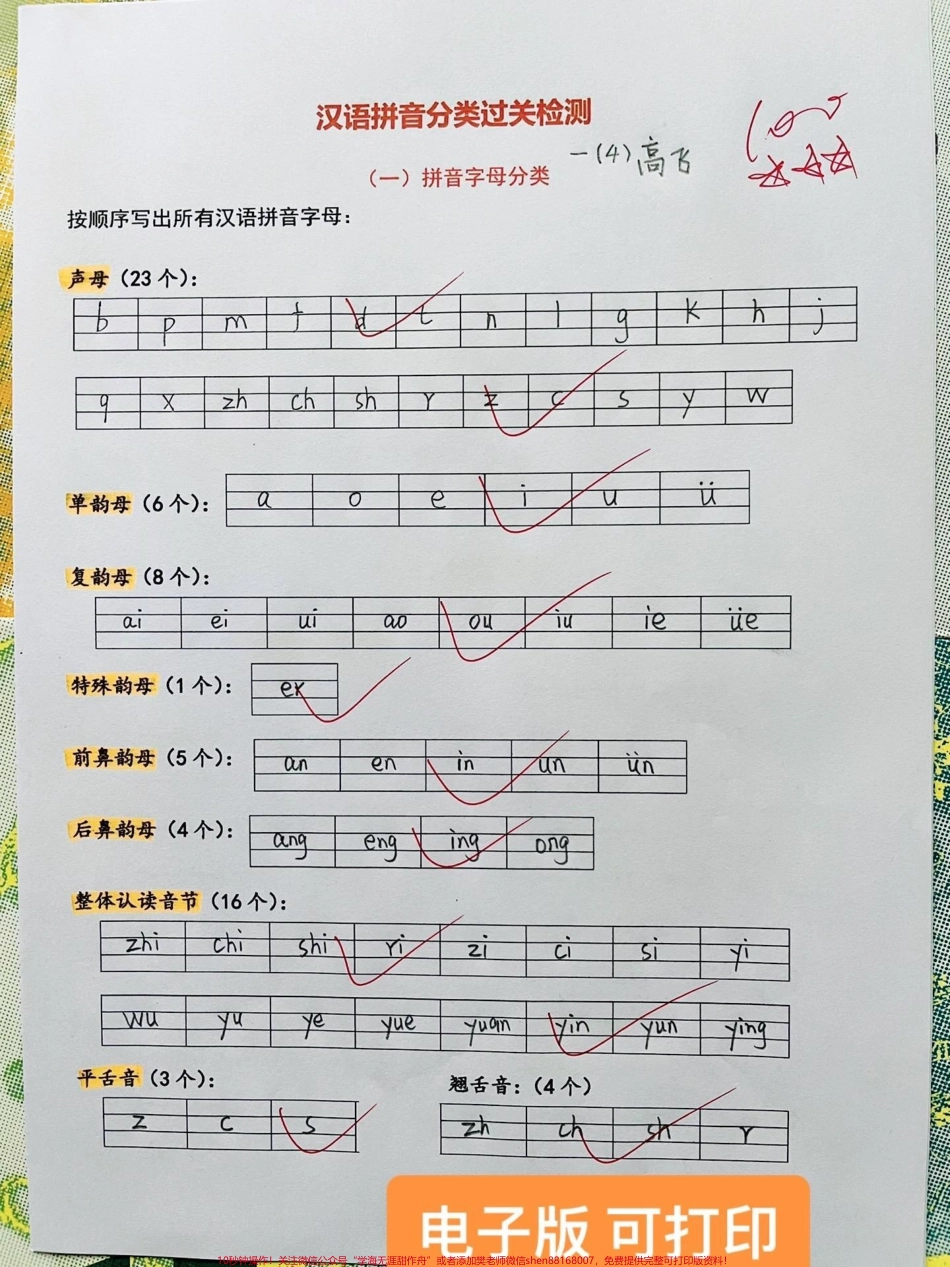 汉语拼音分类过关检测
100
一(4)高飞
(一)拼音字母分类
按顺序写出所有汉语拼音字母:
声母(23个):
b p m f d t n l g k h j
q x zh ch sh r z c s y w
单韵母(6个): a o e i u ü
复韵母(8个):
ai ei ui ao ou iu ie üe
特殊韵母(1个): er
前鼻韵母(5个): an en in un ün
后鼻韵母(4个): ang eng ing ong
整体认读音节(16个):
zhi chi shi ri zi ci si yi
wu yu ye yue yuan yin yun ying
平舌音(3个): 翘舌音:(4个)
z c s zh ch sh r
电子版 可打印
10秒钟操作!关注微信公众号“学海无涯甜作舟”或者添加樊老师微信shen88168007,免费提供完整可打印版资料!